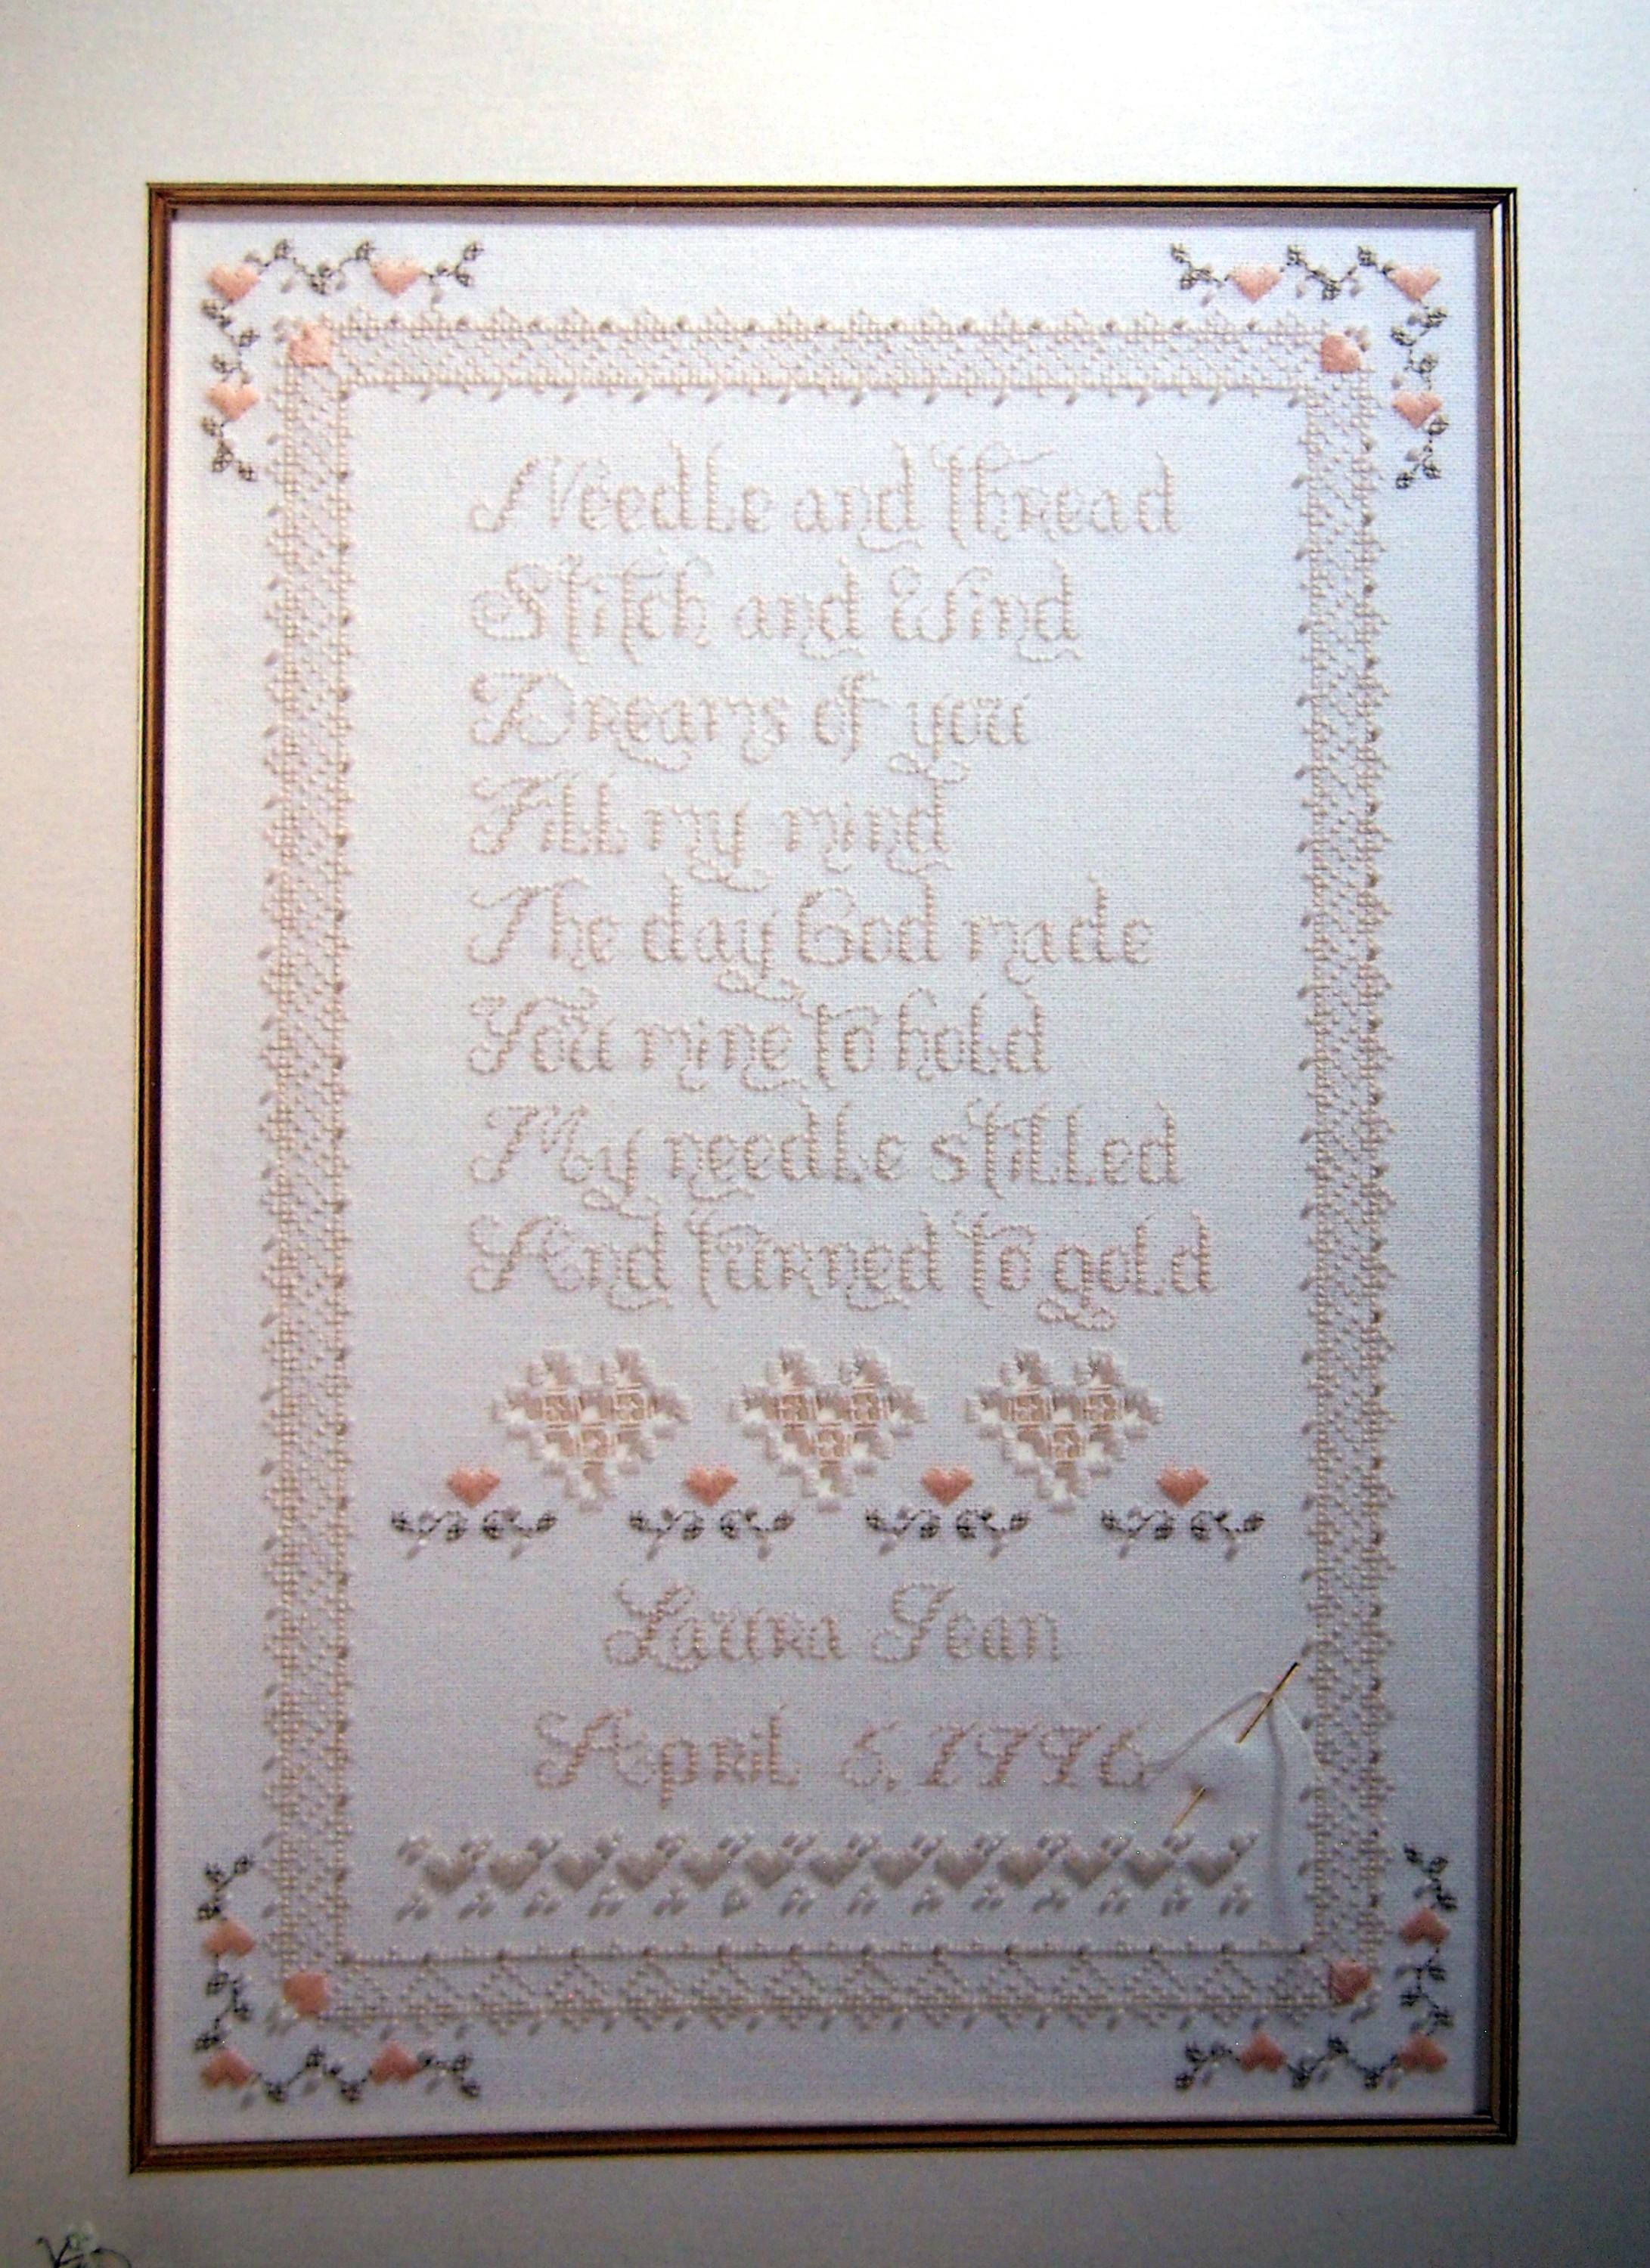 Needle and thread
Stitch and Wind
Dreams of you
Fill my mind
The day God made
You mine to hold
My needle stilled
And turned to gold
Laura Jean
April 6, 1996